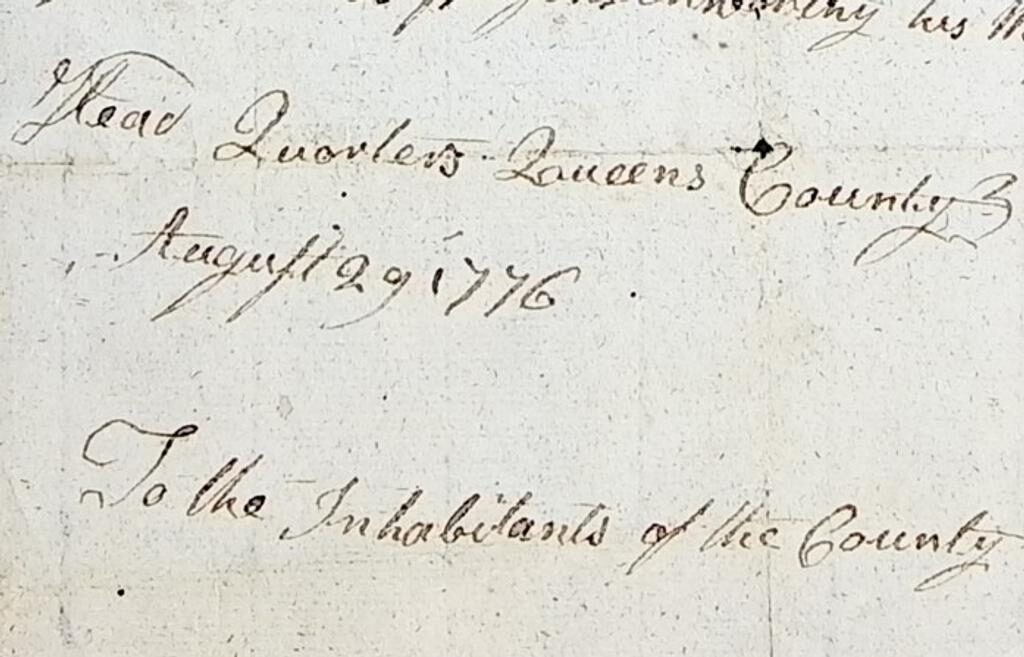 his
Head Quorters Queens County
August 29 1776
To the Inhabitants of the County